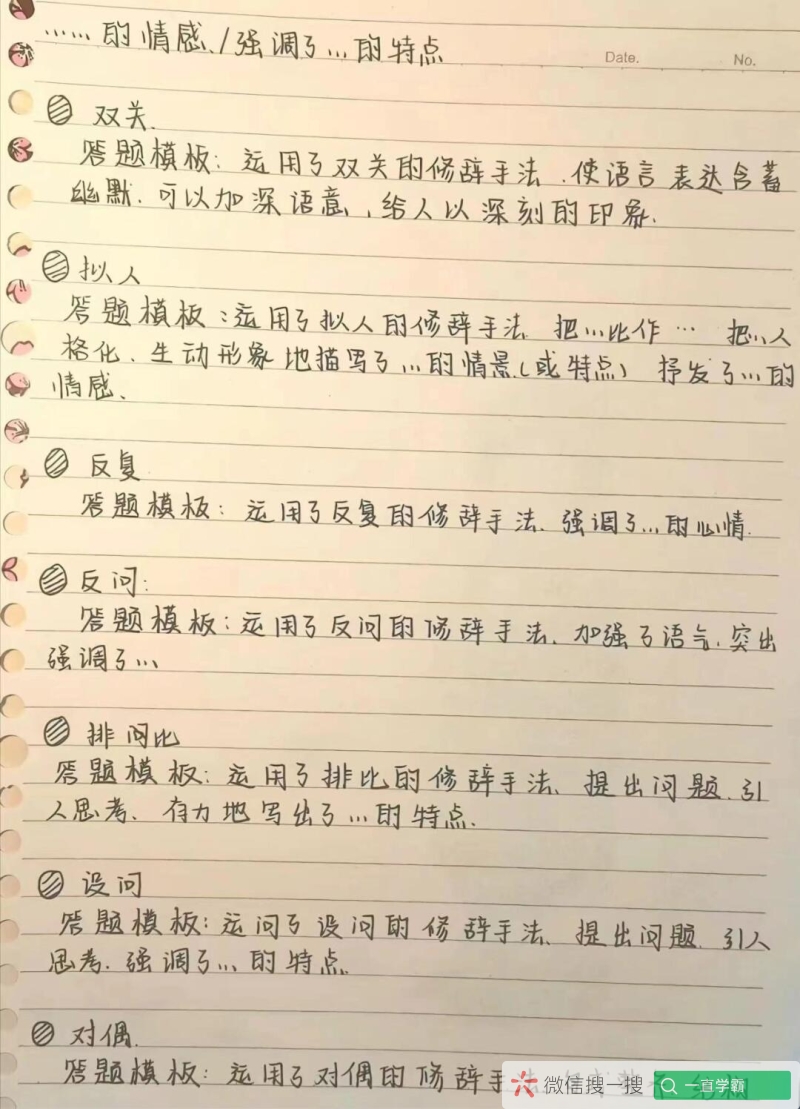 ……的情感、/强调了…的特点
Date.
No.
双关.
答题模板：运用了双关的修辞手法.使语言表达含蓄
幽默.可以加深语意,给人以深刻的印象.
拟人
答题模板：运用了拟人的修辞手法、把…比作… 把…人
格化、生动形象地描写了…的情景(或特点) 抒发了…的
情感、
反复
答题模板：运用了反复的修辞手法、强调了…的心情.
反问：
答题模板：运用了反问的修辞手法、加强了语气.突出
强调了…
排问比
答题模板：运用了排比的修辞手法、提出问题.引
人思考、有力地写出了…的特点.
设问
答题模板：运问了设问的修辞手法、提出问题.引人
思考.强调了…的特点.
对偶.
答题模板：运用了对偶的修辞手
微信搜一搜
一直学霸